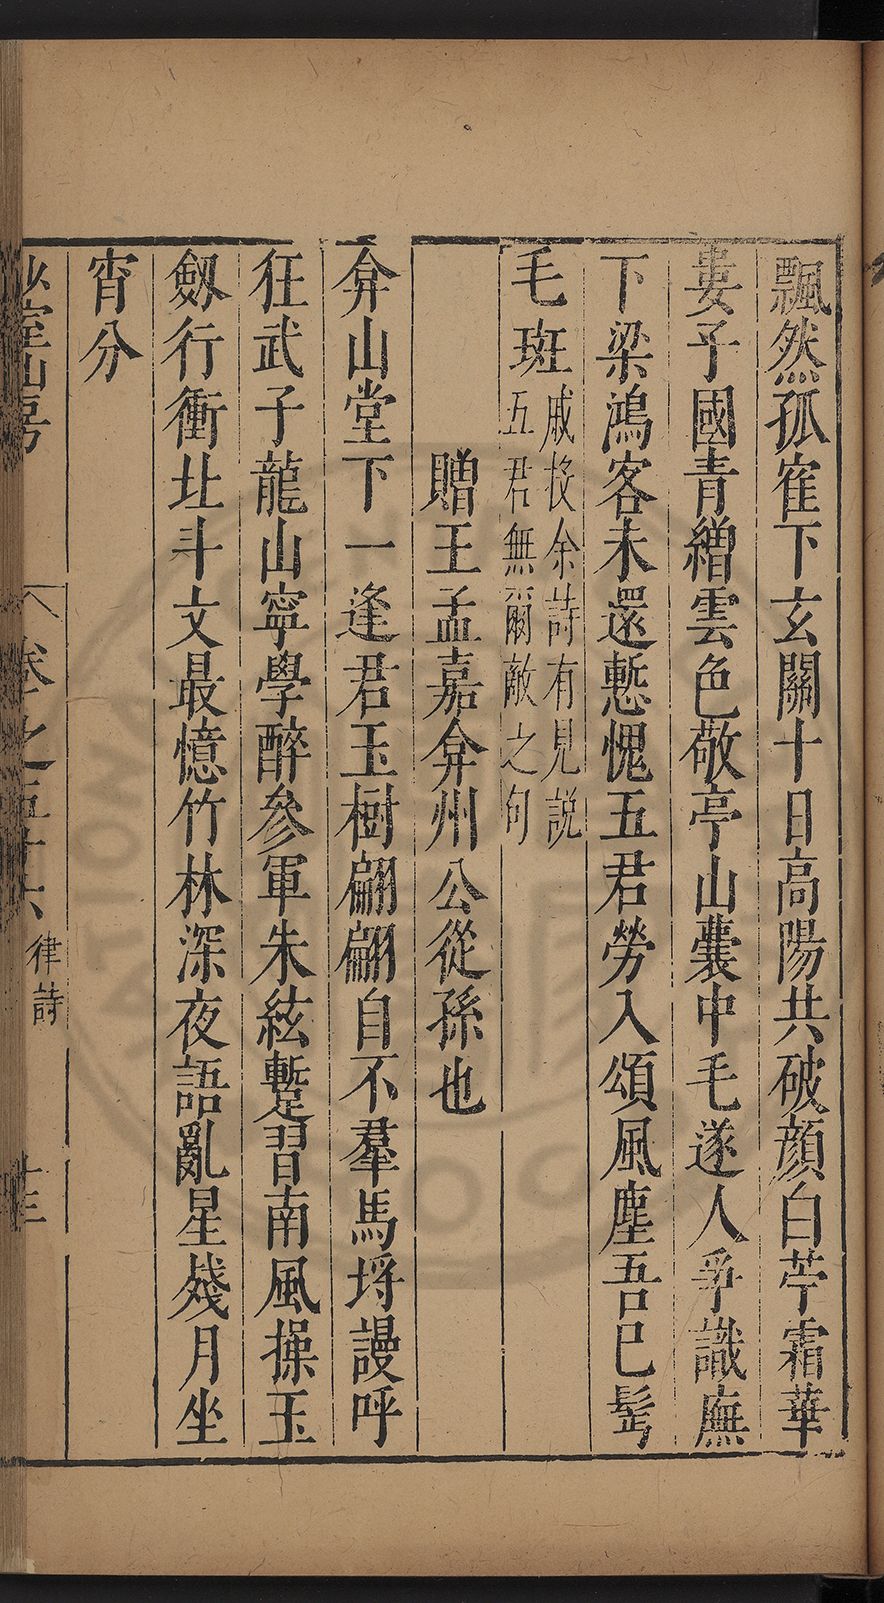 飄然孤隺下玄關十日高陽共破顔白苧霜華
婁子國青繒雲色敬亭山囊中毛遂人爭識廡
下梁鴻客未還慙愧五君勞入頌風塵吾已髩
毛斑
戚投余詩有見説
五君無爾敵之句
贈王孟嘉弇州公從孫也
弇山堂下一逢君玉樹翩翩自不羣馬埒謾呼
狂武子龍山寧學醉參軍朱絃蹔習南風操玉
劔行衝北斗文最憶竹林深夜語亂星殘月坐
宵分
卷之五十六
律詩
十三